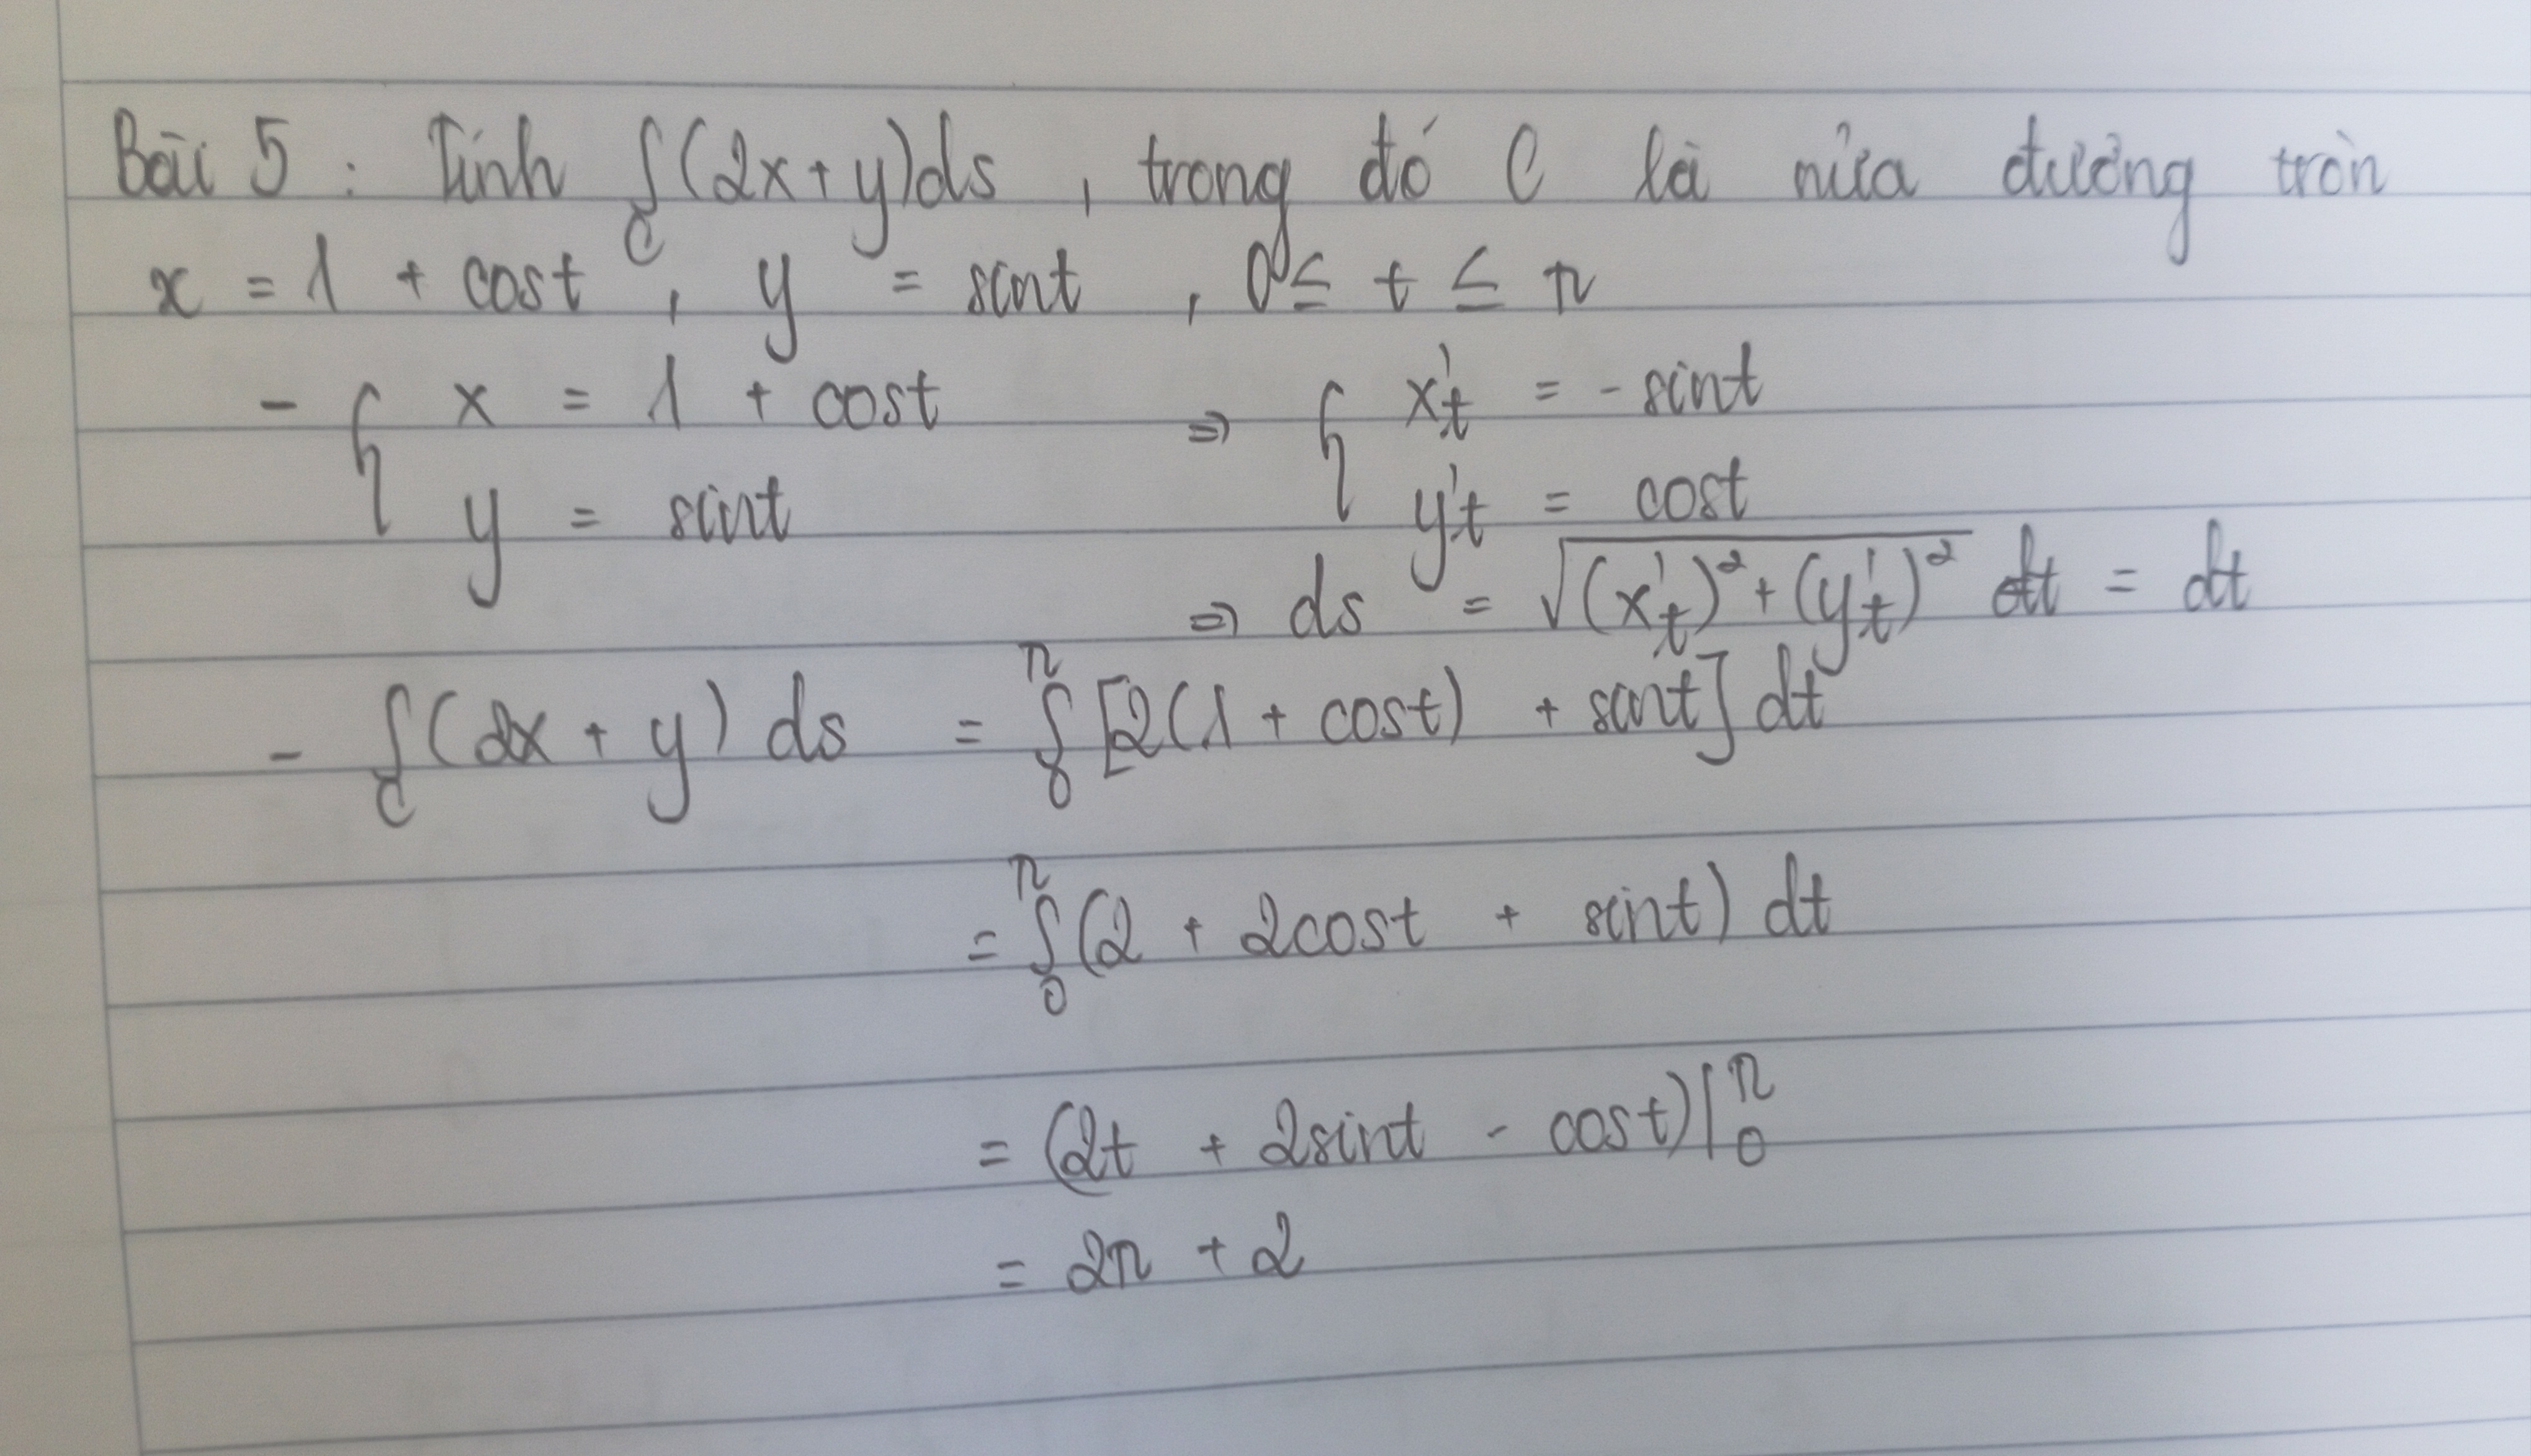 Bài 5 : Tính ∫_C (2x + y)ds , trong đó C là nửa đường tròn
x = 1 + cost , y = sint , 0 ≤ t ≤ π
- { x = 1 + cost ⇒ { x't = - sint
y = sint y't = cost
⇒ ds = √((x't)² + (y't)²) dt = dt
- ∫_C (2x + y) ds = ∫_0^π [2(1 + cost) + sint] dt
= ∫_0^π (2 + 2cost + sint) dt
= (2t + 2sint - cost)|_0^π
= 2π + 2